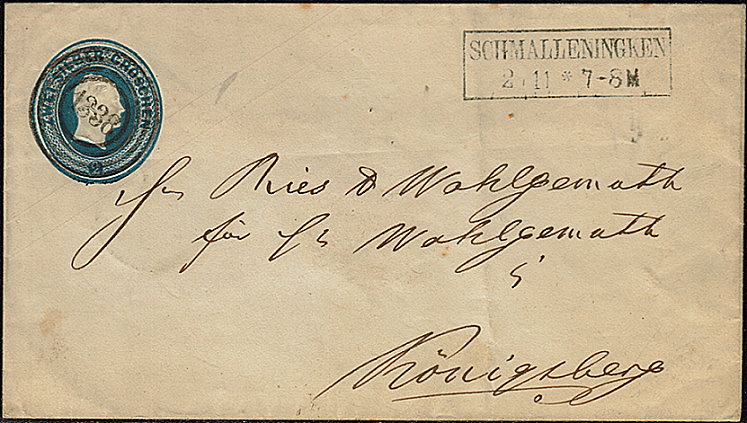 ZWEI SILBER GROSCHEN
2
1338
SCHMALLENINGKEN
2 11 * 7-8 M
Hn Ries & Wohlgemuth
für Hn Wohlgemuth
Königsberg